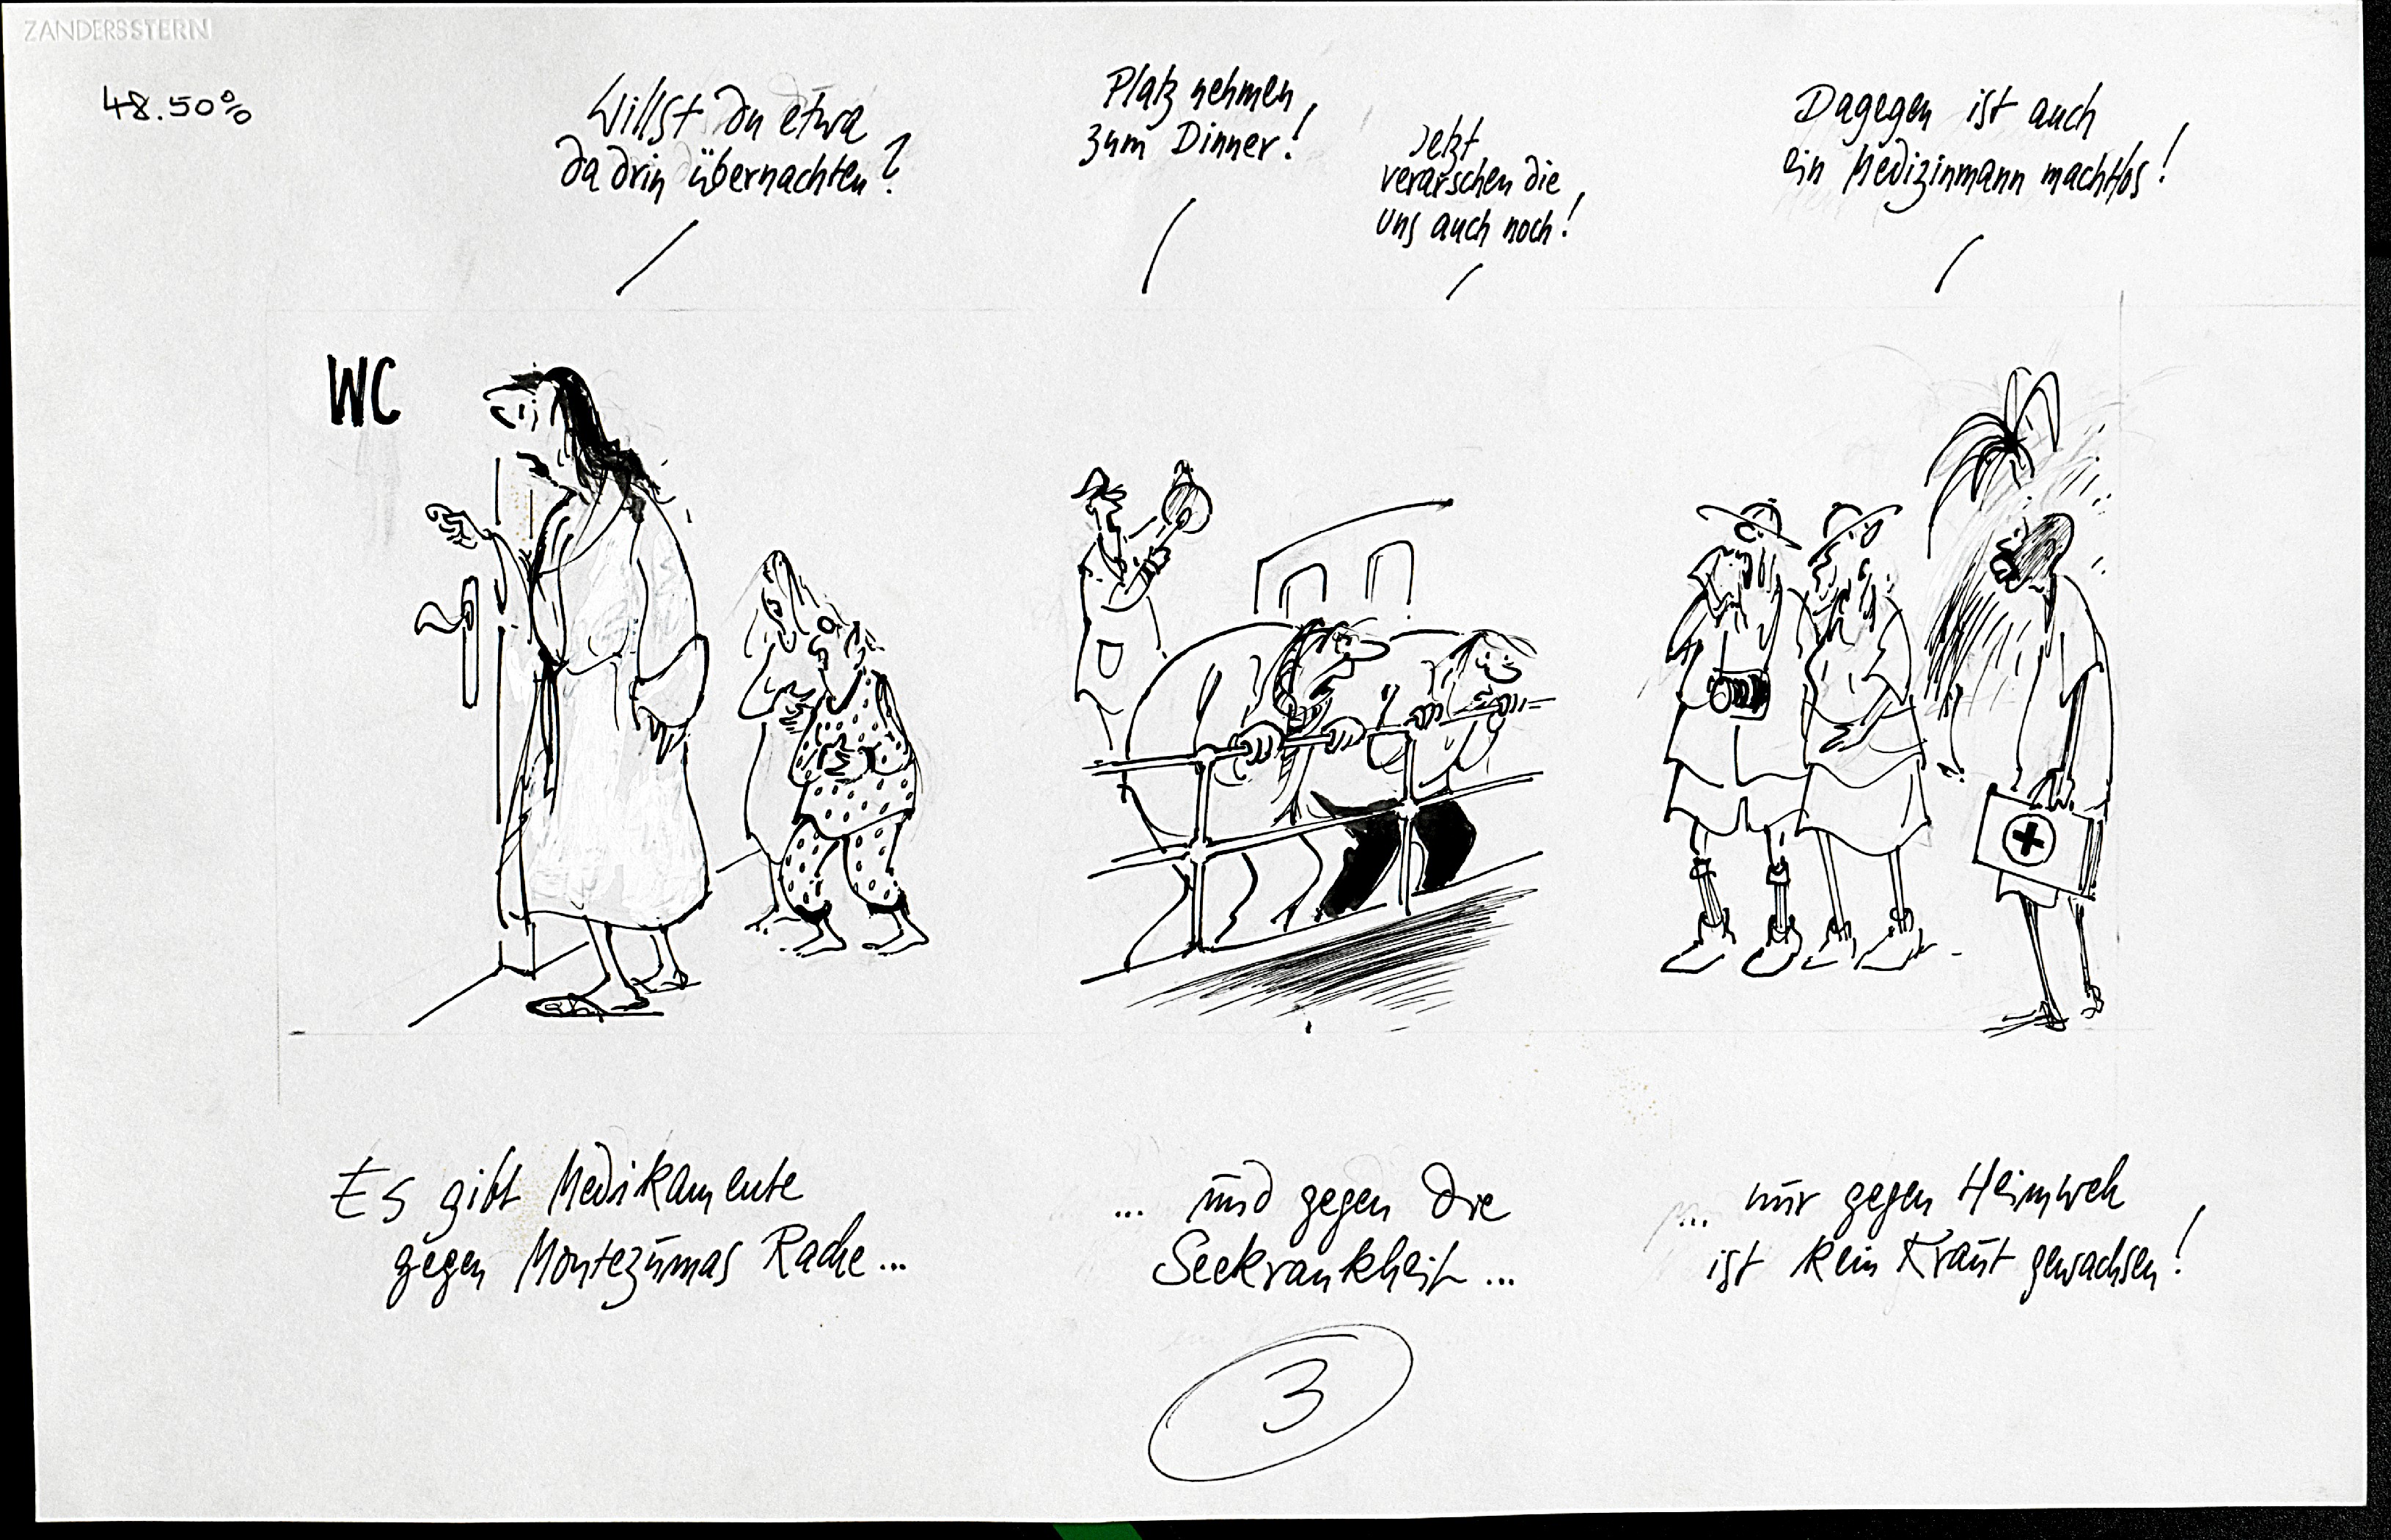 ZANDERSSTERN
48.50%
Willst du etwa
da drin übernachten?
Platz nehmen,
zum Dinner!
Jetzt
verarschen die
uns auch noch!
Dagegen ist auch
ein Medizinmann machtlos!
WC
Es gibt Medikamente
gegen Montezumas Rache...
... und gegen die
Seekrankheit...
... nur gegen Heimweh
ist kein Kraut gewachsen!
3